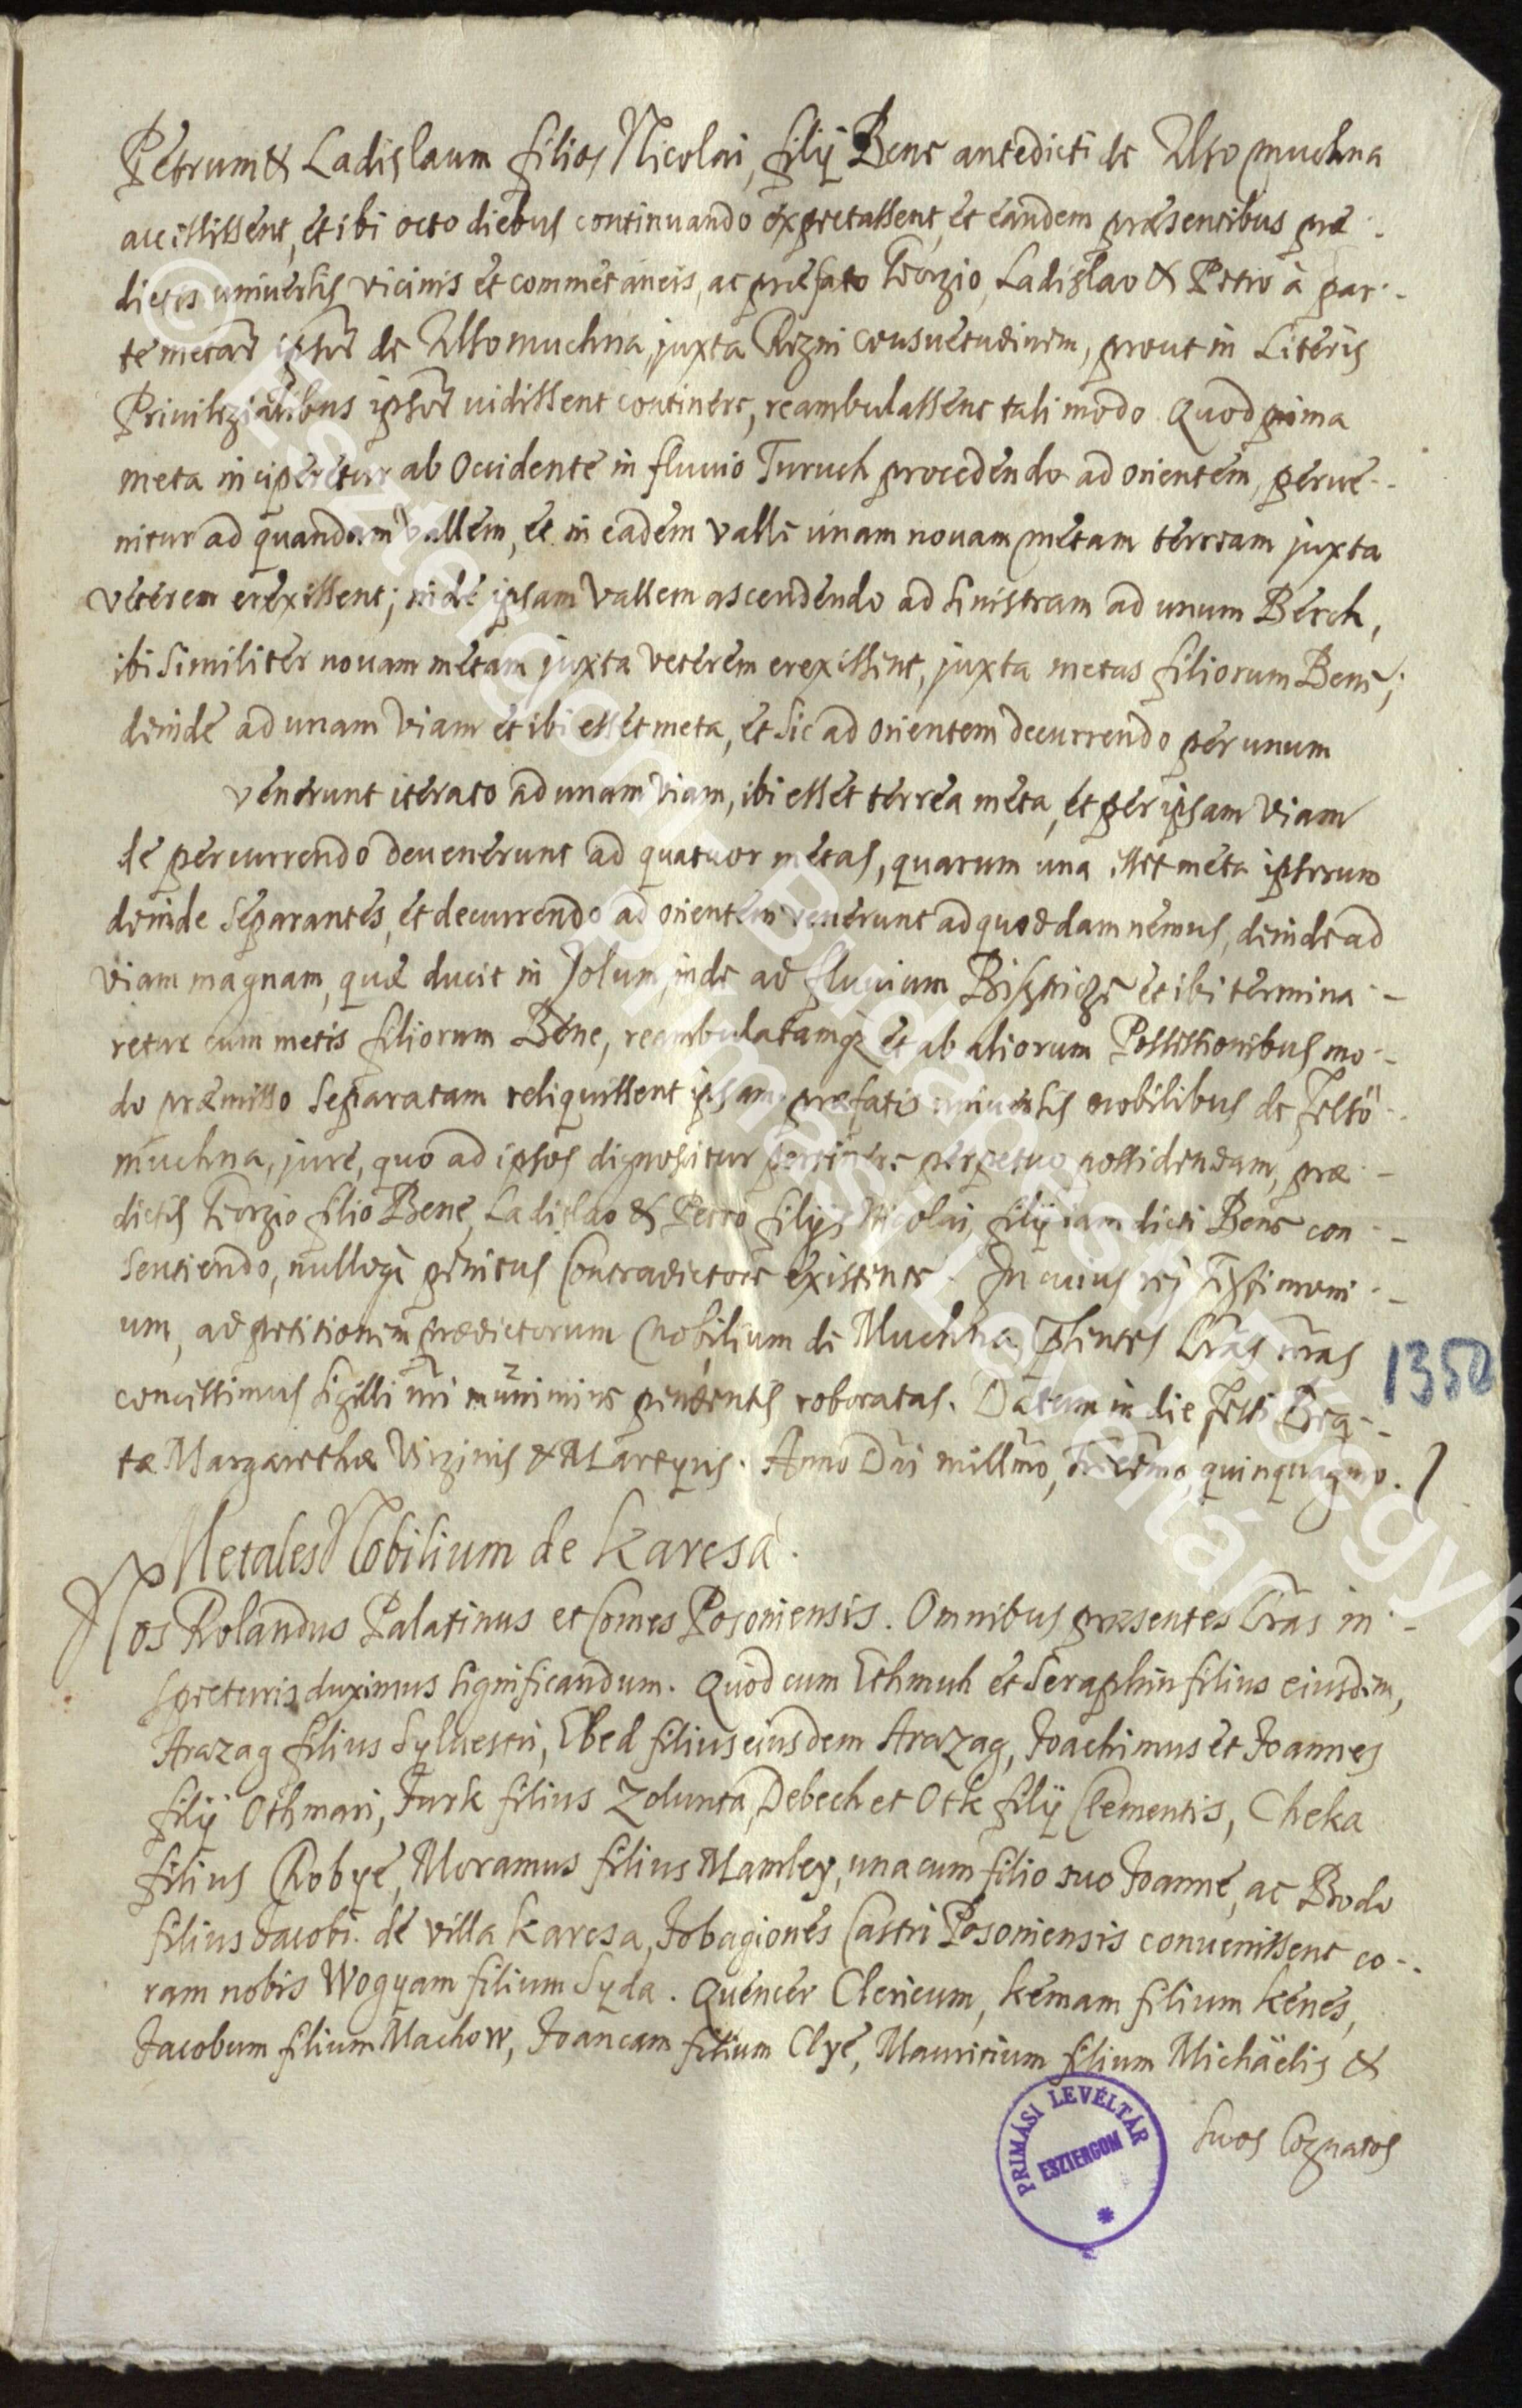 Petrum & Ladislaum filios Nicolai, filij Bene antedicti de Alsomuchna
accessissent, et ibi octo diebus continuando expectassent, et eandem præsentibus præ-
dictis universis vicinis et commetaneis, ac præfato Georgio, Ladislao & Petro à par-
te metar ipsor de Alsomuchna juxta Regni consuetudinem, prout in Literis
Privilegialibus ipsor vidissent contineri, reambulassent tali modo. Quod prima
meta inciperetur ab Occidente in fluvio Turuch procedendo ad orientem, perve-
nitur ad quandam vallem, et in eadem valle unam novam metam terream juxta
veterem erexissent; inde ipsam vallem ascendendo ad sinistram ad unum Berch,
ibi similiter novam metam juxta veterem erexissent, juxta metas filiorum Bene;
deinde ad unam viam et ibi esset meta, et sic ad orientem decurrendo per unum
venerunt iterato ad unam viam, ibi esset terrea meta, et per ipsam viam
de percurrendo devenerunt ad quatuor metas, quarum una esset meta ipsorum
deinde separantes, et decurrendo ad orientem venerunt ad quoddam nemus, deinde ad
viam magnam, quæ ducit in Zolum, inde ad fluvium Bisztricze et ibi termina-
retur cum metis filiorum Bene, reambulatamq et ab aliorum Possessionibus mo-
do præmisso separatam reliquissent ipsam præfatis universis nobilibus de Felsö-
muchna, jure, quo ad ipsos dignoscitur pertinere perpetuo possidendam, præ-
dictis Georgio filio Bene, Ladislao & Petro filijs Nicolai, filij iam dicti Bene con-
sentiendo, nulloqe penitus Contradictore existente. In cuius rei testimoni-
um, ad petitionem prædictorum Nobilium de Muchna pntes Lras nras
concessimus sigilli nri munimine pendentis roboratas. Datum in die festi Bea-
tæ Margarethæ Virginis & Martyris. Anno Dni millmo, Trecmo, quinquagmo.
1350
Metales Nobilium de Karcsa.
Nos Rolandus Palatinus et Comes Posoniensis. Omnibus præsentes Lras in-
specturis duximus significandum. Quod cum Ethmuh et Seraphin filius eiusdem,
Arazag filius Sylvestri, Ebed filius eiusdem Arazag, Joachimus et Joannes
filij Othmari, Turk filius Zolunta, Debech et Otk filij Clementis, Cheka
filius Chobye, Moramus filius Mamley, una cum filio suo Joanne, ac Bodo
filius Jacobi de villa Karcsa, Jobagiones Castri Posoniensis convenissent co-
ram nobis Wogyam filium Syda. Quencer Clericum, Kemam filium Kenes,
Jacobum filium Machow, Joancam filium Elye, Mauritium filium Michäelis &
suos Cognatos
PRIMÁSI LEVÉLTÁR
ESZTERGOM
© Esztergom-Budapesti Főegyhá
Prímási Levéltár